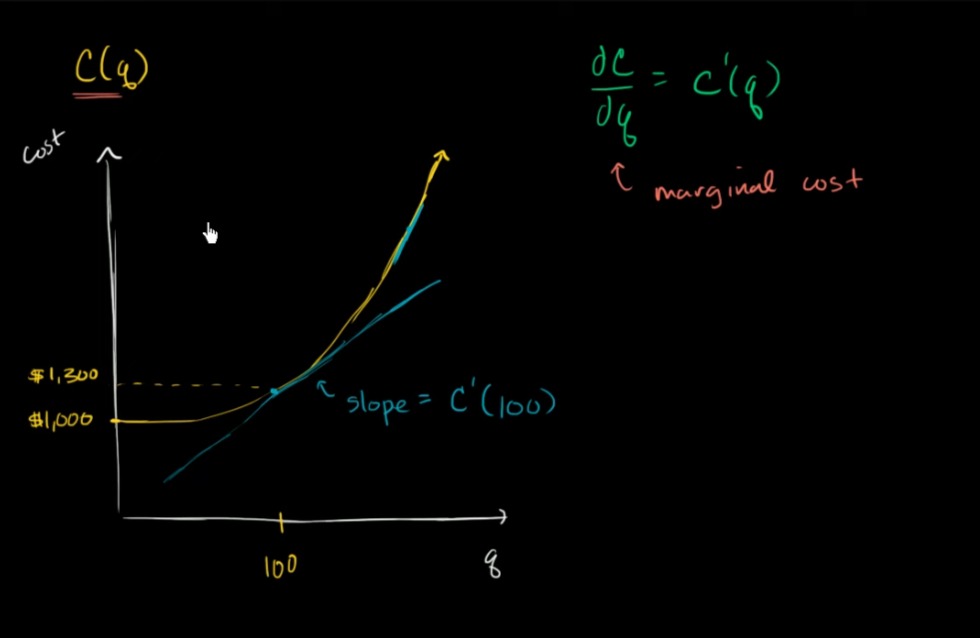 C(q)
dC/dq = C'(q)
cost
marginal cost
$1,300
$1,000
slope = C'(100)
100
q